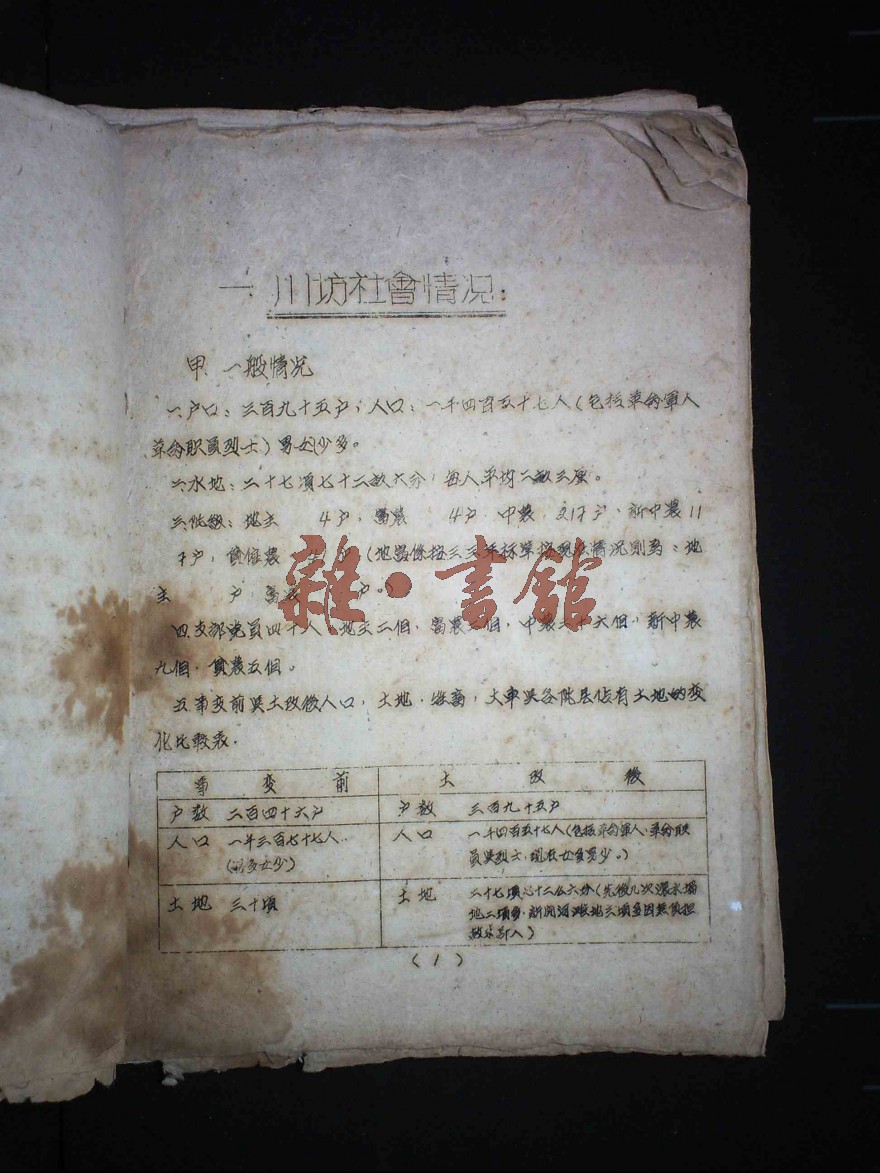 一. 川坊社會情况:
甲. 一般情况
一.户口：三百九十五户；人口：一千四百五十七人（包括革命軍人
革命职員烈士）男女少多。
二.水地：二十七頃七十二畝六分，每人平均二畝三厘。
三.阶级：地主 4户，富農 4户，中農 户，新中農11
户，貧僱農 户（地富係按三三年标準按現在情况則為：地
主 户，富農 户。
四.支部党員四十人，地主二個，富農 個，中農二十六個，新中農
九個，貧農五個。
五.事变前與土改後人口，土地，牲畜，大車與各阶层佔有土地的变
化比較表.
事 变 前 土 改 後
户数 二百四十六户 户数 三百九十五户
人口 一千三百七十七人. 人口 一千四百五十七人（包括革命軍人、革命职
（男多女少） 員與烈士，現在女多男少。）
土地 三十頃 土地 二十七頃七十二亩六分（先後几次濮水塌
地二項多，新開河灘地三頃多因無負担
故未寫入）
(1)
雜·書館